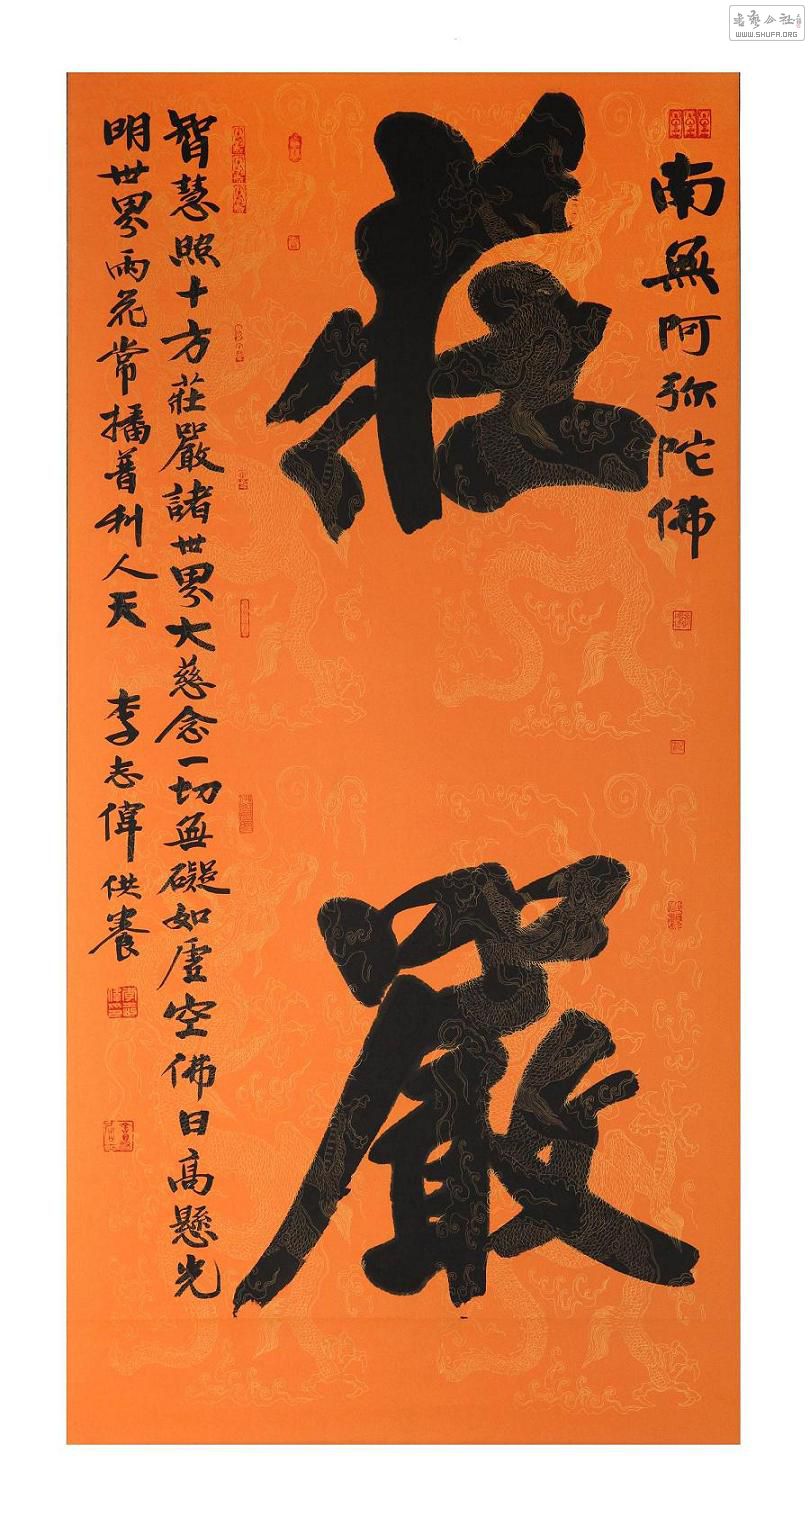 南無阿弥陀佛
莊嚴
智慧照十方莊嚴諸世界大慈念一切無礙如虛空佛日高懸光
明世界雨花常播普利人天 李志偉供養
WWW.SHUFA.ORG